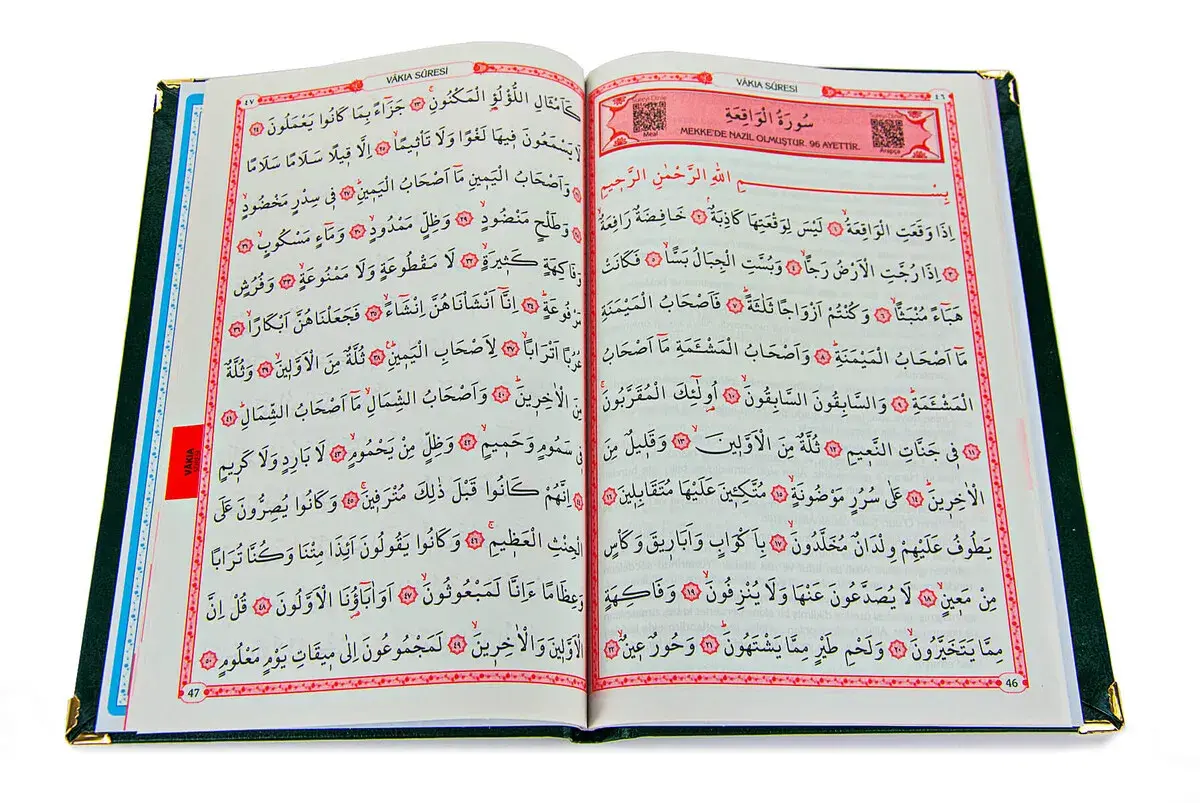 VÂKIA SÛRESİ ٤٦
سُورَةُ الْوَاقِعَةِ
MEKKE'DE NAZİL OLMUŞTUR. 96 AYETTİR.
Meal
Arapça
بِسْمِ اللّٰهِ الرَّحْمٰنِ الرَّحٖيمِ
اِذَا وَقَعَتِ الْوَاقِعَةُۙ ﴿١﴾ لَيْسَ لِوَقْعَتِهَا كَاذِبَةٌۘ ﴿٢﴾ خَافِضَةٌ رَافِعَةٌۙ
﴿٣﴾ اِذَا رُجَّتِ الْاَرْضُ رَجًّاۙ ﴿٤﴾ وَبُسَّتِ الْجِبَالُ بَسًّاۙ ﴿٥﴾ فَكَانَتْ
هَبَٓاءً مُنْبَثًّاۙ ﴿٦﴾ وَكُنْتُمْ اَزْوَاجًا ثَلٰثَةًؕ ﴿٧﴾ فَاَصْحَابُ الْمَيْمَنَةِ
مَٓا اَصْحَابُ الْمَيْمَنَةِؕ ﴿٨﴾ وَاَصْحَابُ الْمَشْـَٔمَةِ مَٓا اَصْحَابُ
الْمَشْـَٔمَةِؕ ﴿٩﴾ وَالسَّابِقُونَ السَّابِقُونَۙ ﴿١٠﴾ اُو۬لٰٓئِكَ الْمُقَرَّبُونَۚ
﴿١١﴾ فٖي جَنَّاتِ النَّعٖيمِ ﴿١٢﴾ ثُلَّةٌ مِنَ الْاَوَّلٖينَۙ ﴿١٣﴾ وَقَلٖيلٌ مِنَ
الْاٰخِرٖينَؕ ﴿١٤﴾ عَلٰى سُرُرٍ مَوْضُونَةٍۙ ﴿١٥﴾ مُتَّكِـٖٔينَ عَلَيْهَا مُتَقَابِلٖينَ ﴿١٦﴾
يَطُوفُ عَلَيْهِمْ وِلْدَانٌ مُخَلَّدُونَۙ ﴿١٧﴾ بِاَكْوَابٍ وَاَبَارٖيقَ وَكَأْسٍ
مِنْ مَعٖينٍۙ ﴿١٨﴾ لَا يُصَدَّعُونَ عَنْهَا وَلَا يُنْزِفُونَۙ ﴿١٩﴾ وَفَاكِهَةٍ
مِمَّا يَتَخَيَّرُونَۙ ﴿٢٠﴾ وَلَحْمِ طَيْرٍ مِمَّا يَشْتَهُونَؕ ﴿٢١﴾ وَحُورٌ عٖينٌۙ ﴿٢٢﴾
46
٤٧ VÂKIA SÛRESİ
كَاَمْثَالِ اللُّؤْلُؤِ۬ الْمَكْنُونِۚ ﴿٢٣﴾ جَزَٓاءً بِمَا كَانُوا يَعْمَلُونَ ﴿٢٤﴾
لَا يَسْمَعُونَ فٖيهَا لَغْوًا وَلَا تَأْثٖيمًاۙ ﴿٢٥﴾ اِلَّا قٖيلًا سَلَامًا سَلَامًا
وَاَصْحَابُ الْيَمٖينِ مَٓا اَصْحَابُ الْيَمٖينِؕ ﴿٢٧﴾ فٖي سِدْرٍ مَخْضُودٍۙ
وَطَلْحٍ مَنْضُودٍۙ ﴿٢٩﴾ وَظِلٍّ مَمْدُودٍۙ ﴿٣٠﴾ وَمَٓاءٍ مَسْكُوبٍۙ ﴿٣١﴾
وَفَاكِهَةٍ كَثٖيرَةٍۙ ﴿٣٢﴾ لَا مَقْطُوعَةٍ وَلَا مَمْنُوعَةٍۙ ﴿٣٣﴾ وَفُرُشٍ
مَرْفُوعَةٍؕ ﴿٣٤﴾ اِنَّٓا اَنْشَأْنَاهُنَّ اِنْشَٓاءًۙ ﴿٣٥﴾ فَجَعَلْنَاهُنَّ اَبْكَارًاۙ ﴿٣٦﴾
عُرُبًا اَتْرَابًاۙ ﴿٣٧﴾ لِاَصْحَابِ الْيَمٖينِؕ ﴿٣٨﴾ ثُلَّةٌ مِنَ الْاَوَّلٖينَۙ ﴿٣٩﴾ وَثُلَّةٌ
مِنَ الْاٰخِرٖينَؕ ﴿٤٠﴾ وَاَصْحَابُ الشِّمَالِۙ مَٓا اَصْحَابُ الشِّمَالِؕ ﴿٤١﴾
فٖي سَمُومٍ وَحَمٖيمٍۙ ﴿٤٢﴾ وَظِلٍّ مِنْ يَحْمُومٍۙ ﴿٤٣﴾ لَا بَارِدٍ وَلَا كَرٖيمٍ
اِنَّهُمْ كَانُوا قَبْلَ ذٰلِكَ مُتْرَفٖينَۚ ﴿٤٥﴾ وَكَانُوا يُصِرُّونَ عَلَى
الْحِنْثِ الْعَظٖيمِۚ ﴿٤٦﴾ وَكَانُوا يَقُولُونَ اَئِذَا مِتْنَا وَكُنَّا تُرَابًا
وَعِظَامًا ءَاِنَّا لَمَبْعُوثُونَۙ ﴿٤٧﴾ اَوَاٰبَٓاؤُ۬نَا الْاَوَّلُونَ ﴿٤٨﴾ قُلْ اِنَّ
الْاَوَّلٖينَ وَالْاٰخِرٖينَۙ ﴿٤٩﴾ لَمَجْمُوعُونَ اِلٰى مٖيقَاتِ يَوْمٍ مَعْلُومٍ ﴿٥٠﴾
47
VÂKIA